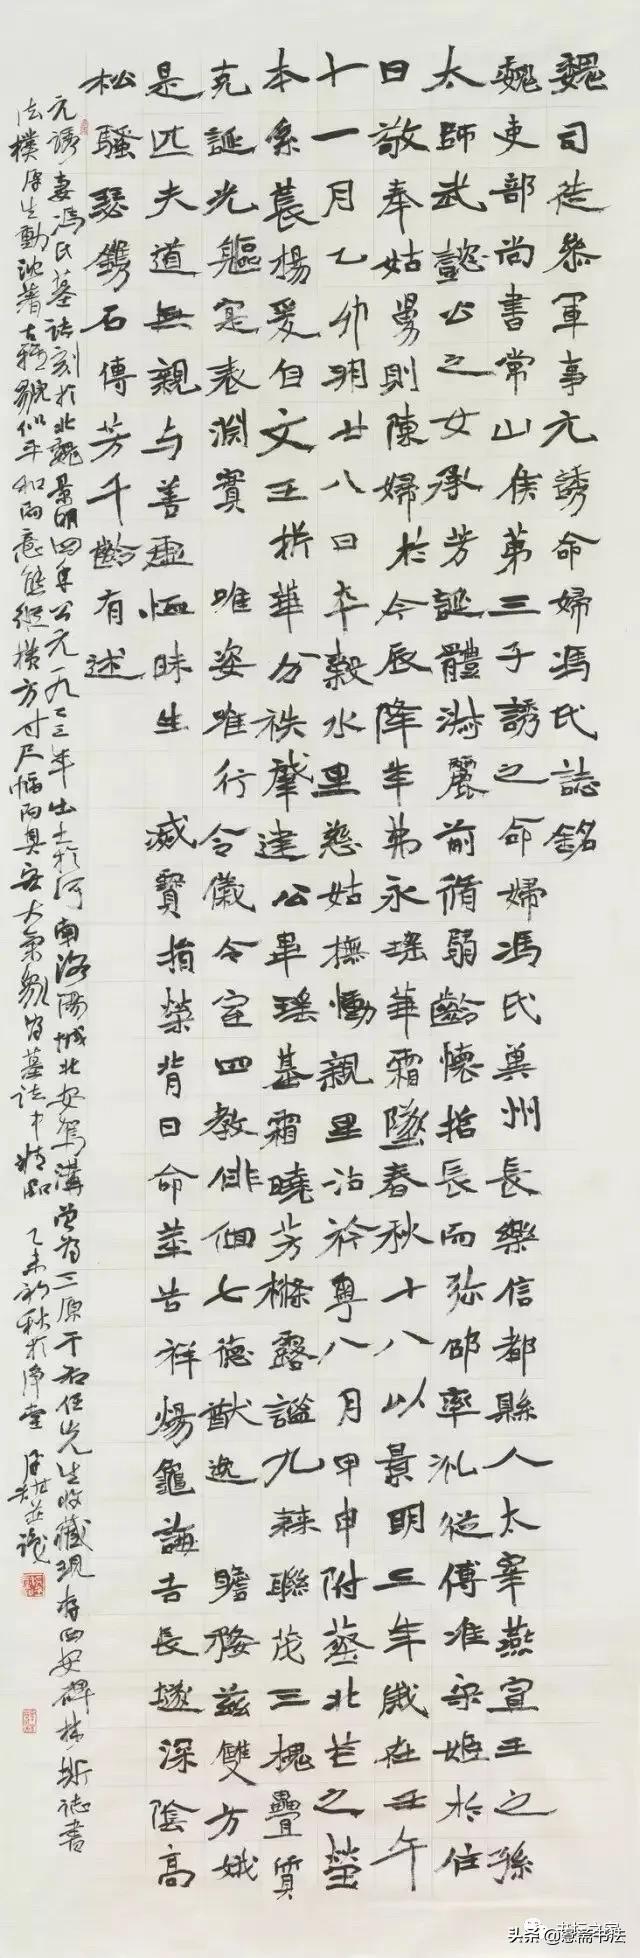 魏司徒參軍事元誘命婦馮氏誌銘
魏吏部尚書常山侯第三子誘之命婦馮氏冀州長樂信都縣人太宰燕宣王之孫
太師武懿公之女承芳誕體淑麗前脩弱齡懷哲長而弥卲率礼從傅准宋姫於住
日敬奉姑舅則陳婦於今辰降年弗永瑤華霜墜春秋十八以景明三年歲在壬午
十一月乙卯朔廿八日卒穀水里慈姑撫慟親里沾衿粤八月甲申附葬北芒之塋
本系萇楊爰自文王析華分秩肇建公畢瑤基霜曉芳條露謐九棘聯茂三槐疊質
克誕光軀寔表淵實 唯姿唯行令儀令室四教俳佪七德猷逸 瞻務茲雙方娥
是匹夫道無親与善虛恒昧生 滅賢揖榮背日命筮告祥煬龜誨吉長墜深陰高
松騷瑟鐫石傳芳千齡有述
元誘妻馮氏墓誌刻於北魏景明四年公元一九二三年出土於河南洛陽城北安駕溝曾為三原于右任先生收藏現存西安碑林斯誌書
法樸厚生動沈著古雅貌似平和而意態縱橫方寸尺幅而具宏大氣象為墓誌中精品 乙未初秋於淨堂 並識
头条 @慧斋书法